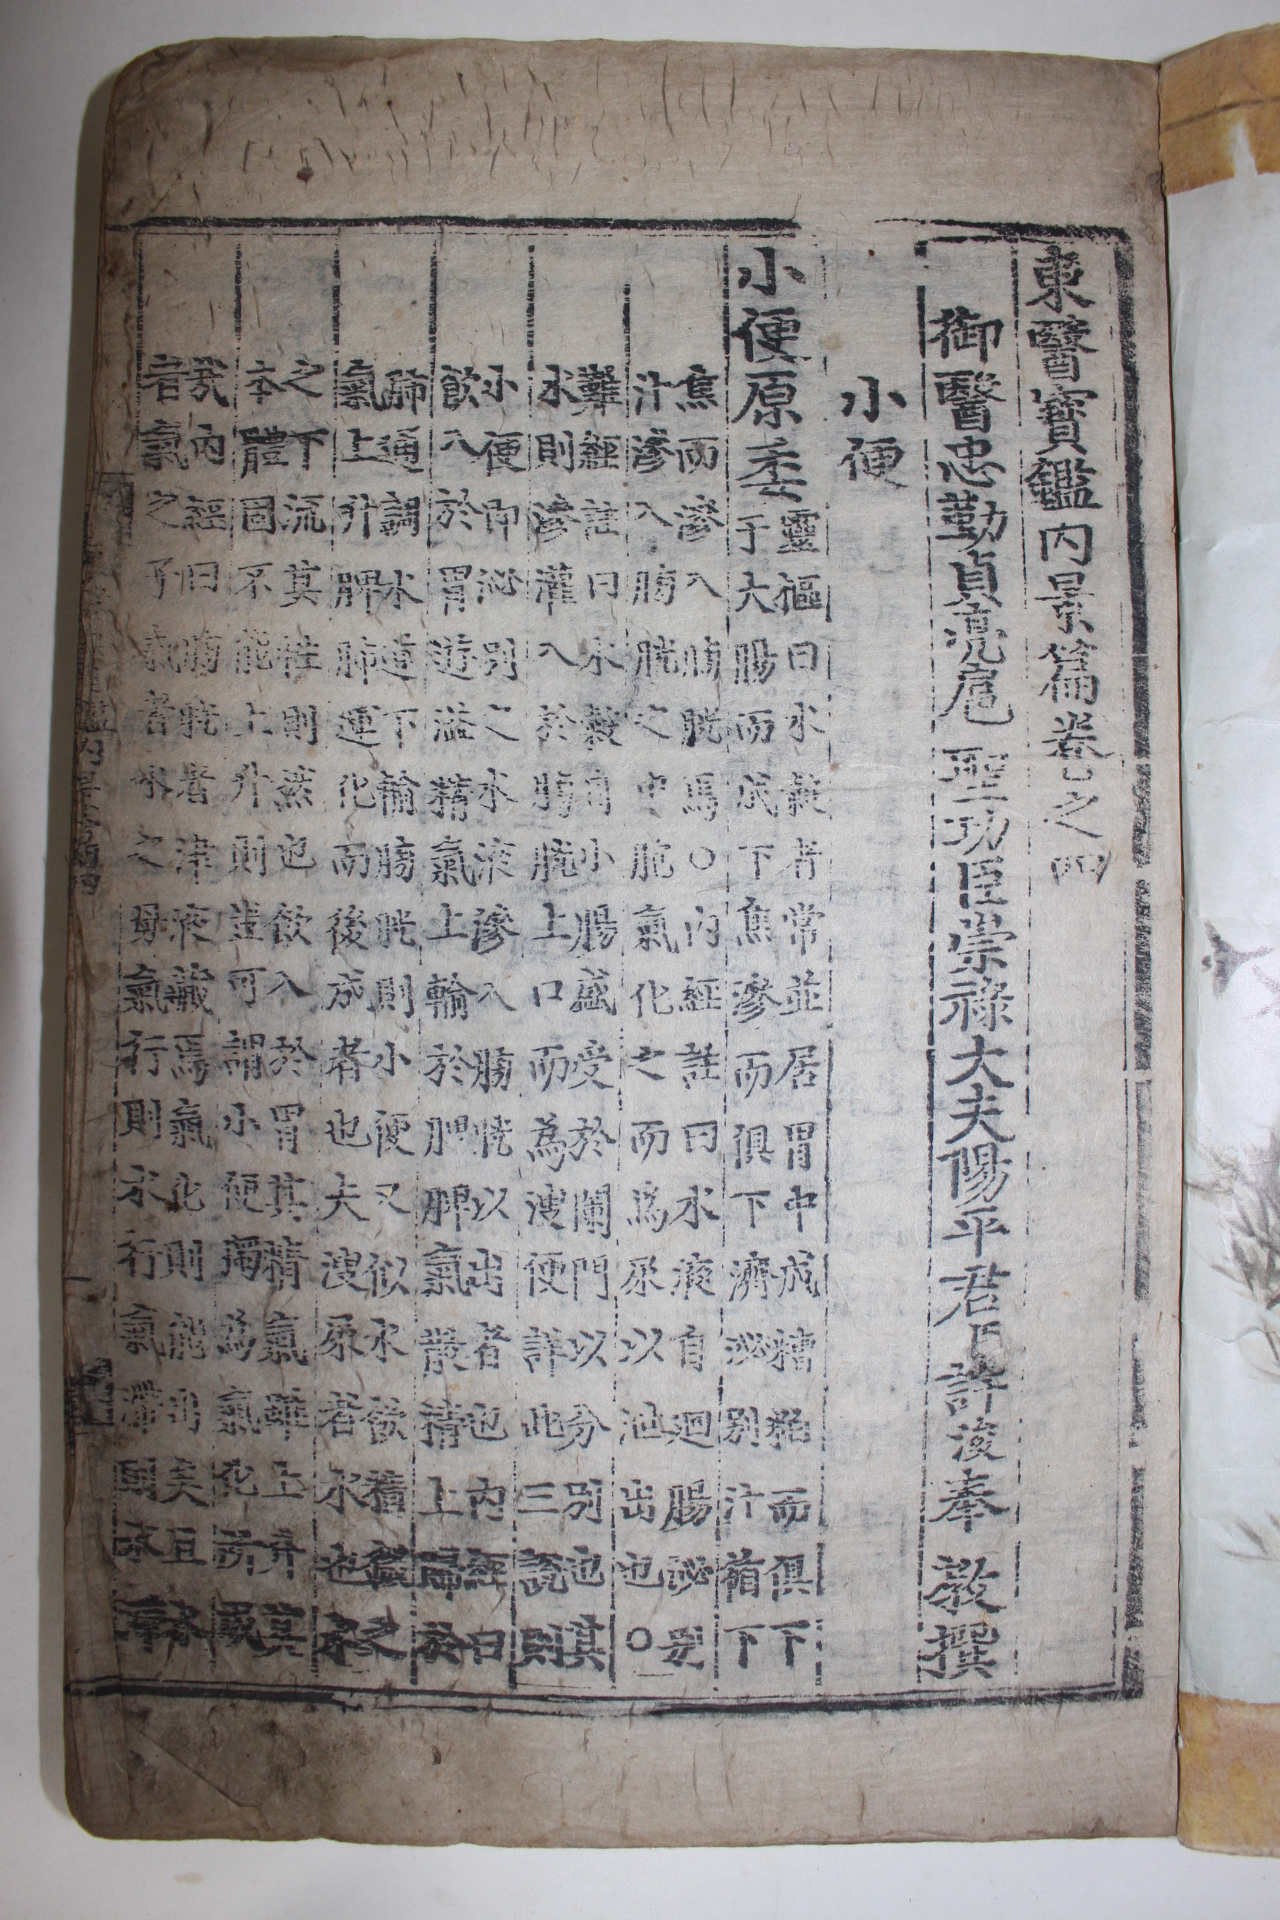 東醫寶鑑內景篇卷之四
御醫忠勤貞亮扈聖功臣崇祿大夫陽平君臣許浚奉敎撰
小便
小便原委
靈樞曰水穀者常並居胃中成糟粕而俱下
于大腸而成下焦滲而俱下濟泌別汁循下
焦而滲入膀胱焉○內經註曰水液自迴腸泌別
汁滲入膀胱之中胞氣化之而爲尿以泄出也○
難經註曰水穀自小腸盛受於闌門以分別也其
水則滲灌入於膀胱上口而為溲便詳此三說則
小便卽泌別之水液滲入膀胱以出者也內經曰
飮入於胃遊溢精氣上輸於脾脾氣散精上歸於
肺通調水道下輸膀胱則小便又似水飮積藏之
氣上升脾肺運化而後成者也夫溲尿者水也水
之下流其性則然也飮入於胃其精氣雖上升其
本體固不能上升則豈可謂小便獨為氣化所成
哉內經曰膀胱者津液藏焉氣化則能出矣且水
者氣之子氣者水之母氣行則水行氣滯則水滯